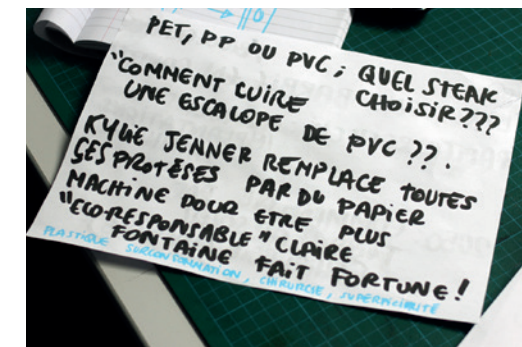 PET, PP OU PVC ; QUEL STEAK
CHOISIR ???
"COMMENT CUIRE
UNE ESCALOPE DE PVC ??
KYLIE JENNER REMPLACE TOUTES
SES PROTÈSES PAR DU PAPIER
MACHINE POUR ETRE PLUS
"ECO-RESPONSABLE" CLAIRE
FONTAINE FAIT FORTUNE !
PLASTIQUE SURCONSOMMATION, CHIRURGIE, SUPERFICIALITÉ